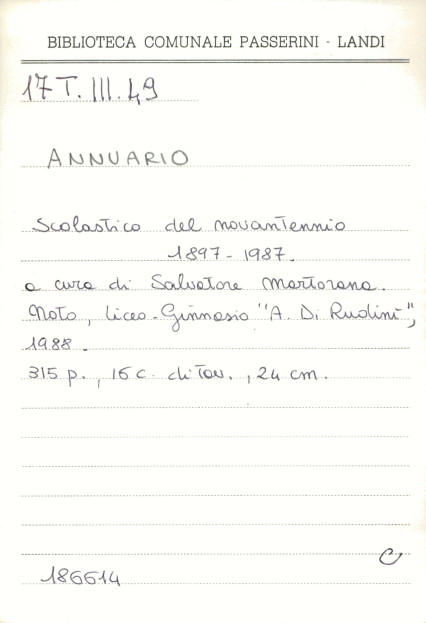 BIBLIOTECA COMUNALE PASSERINI - LANDI
17 T. III. 49
ANNUARIO
Scolastico del novantennio
1897 - 1987.
a cura di Salvatore Martorana.
Noto, Liceo-Ginnasio "A. Di Rudinì",
1988.
315 p., 16 c. di tav., 24 cm.
C
186614